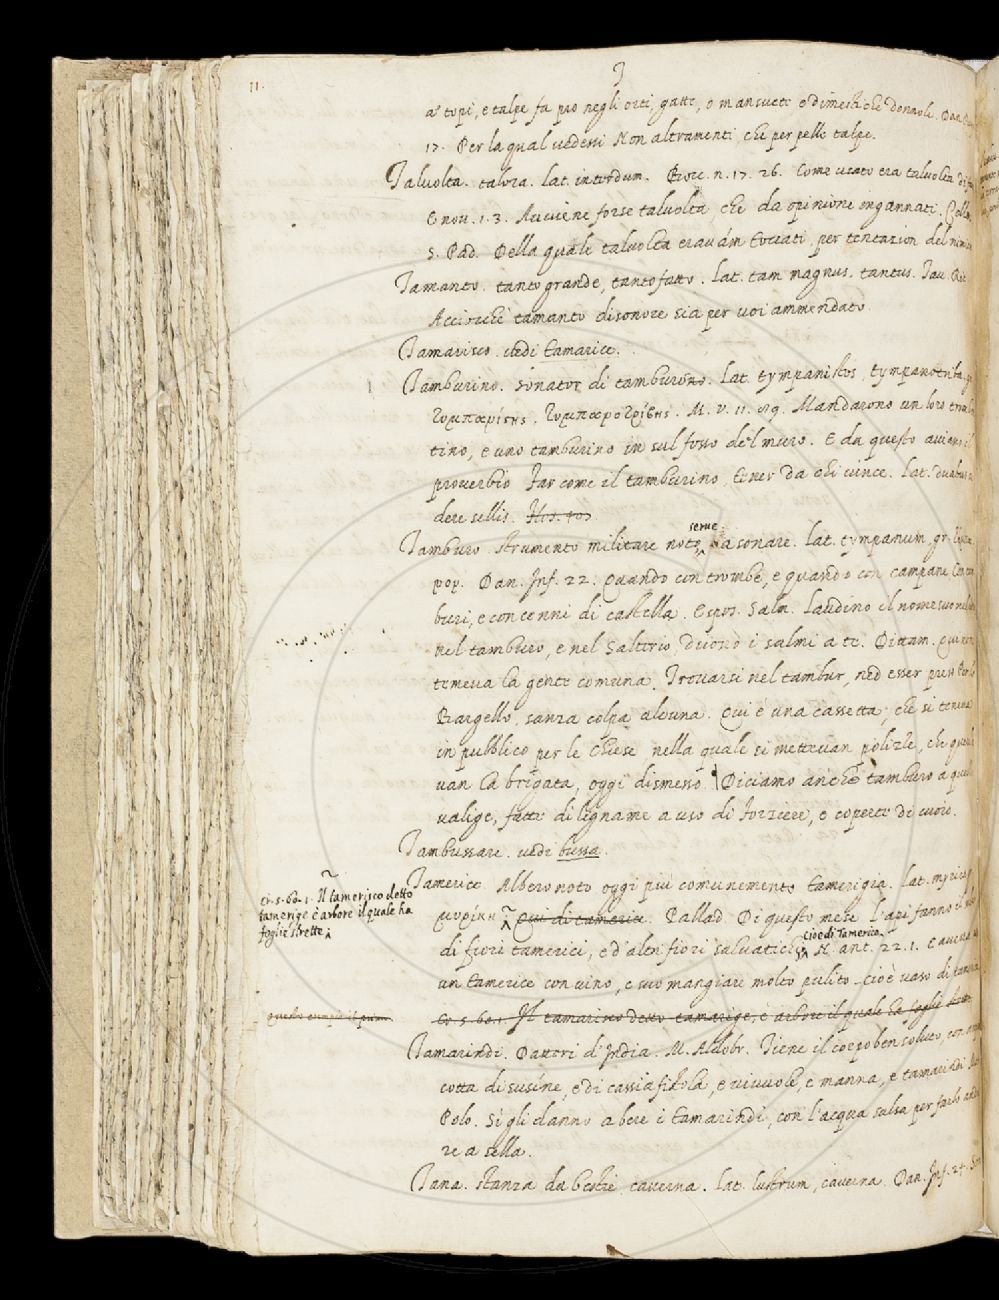 11.
T
a' topi, e talpe fa pro negli orti, gatte, o mansuete o dimestiche donnole. Dan.
17. Per la qual vedessi Non altramenti, che per pelle talpe.
Talvolta. talora. Lat. interdum. Bocc. n. 17. 26. Come usato era talvolta di
E nov. 1. 3. Avviene forse talvolta che da opinione ingannati.
S. Pad. Della quale talvolta eravám toccati, per tentazion del
Tamanto. tanto grande, tanto fatto. Lat. tam magnus. tantus.
Acciocchè tamanto disonore sia per voi ammendato.
Tamarisco. vedi tamarice.
Tamburino. Sonator di tamburo. Lat. tympanistes, tympanotriba.
M. V. 11. Mandarono un loro
tino, e uno tamburino in sul fosso del muro. E da questo
proverbio Far come il tamburino, tener da chi vince. Lat. duabus
dere sellis.
Tamburo. Strumento militare noto, serve a sonare. Lat. tympanum, gr.
Dan. Inf. 22. Quando con trombe, e quando con campane Con
buri, e con cenni di castella. Espos. Salm. Laudino il nome suo
nel tamburo, e nel Salterio, dicono i salmi a te. Dittam.
temeva la gente comuna, Trovarsi nel tambur, nèd esser preso
Bargello, sanza colpa alcuna. Qui è una cassetta, che si teneva
in pubblico per le Chiese nella quale si mettevan polizle, che
van la brigata, oggi dismesso. Diciamo anche tamburo a
valige, fatte di legname a uso di forziere, e coperte di cuoio.
Tambussare. vedi bussa.
Tamerice. Albero noto oggi piu comunemente tamerigia. Lat.
μυρίκη Qui di tamerice. Pallad. Di questo mese l'api fanno il
di fiori tamerici, e d'altri fiori salvatichi cioè di Tamerice. N. ant. 22. 1.
un tamerice con vino, e suo mangiare molto pulito. cioè vaso di
Cr. 5. 60. 1. Il tamerisco detto tamarige, è arbore il quale ha foglie
Cr. 5. 60. 1. Il tamerisco detto
tamerige è arbore il quale ha
foglie strette
Tamarindi. Datteri d'India. M. Aldobr. Tiene il corpo ben soluto,
cotta di susine, e di cassiafistola, e vivuole, e manna, e tamarindi
Polo. Si gli danno a bere i tamarindi, con l'acqua salsa per farlo
re a sella.
Tana. Stanza da bestie, caverna. Lat. lustrum, caverna. Dan. Inf. 24.